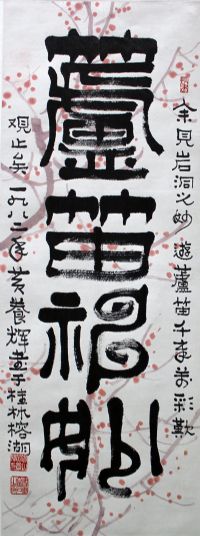 余見岩洞之妙 遊蘆笛千姿萬彩歎
蘆笛神妙
观止矣 一九八二年 黄養辉書于桂林榕湖